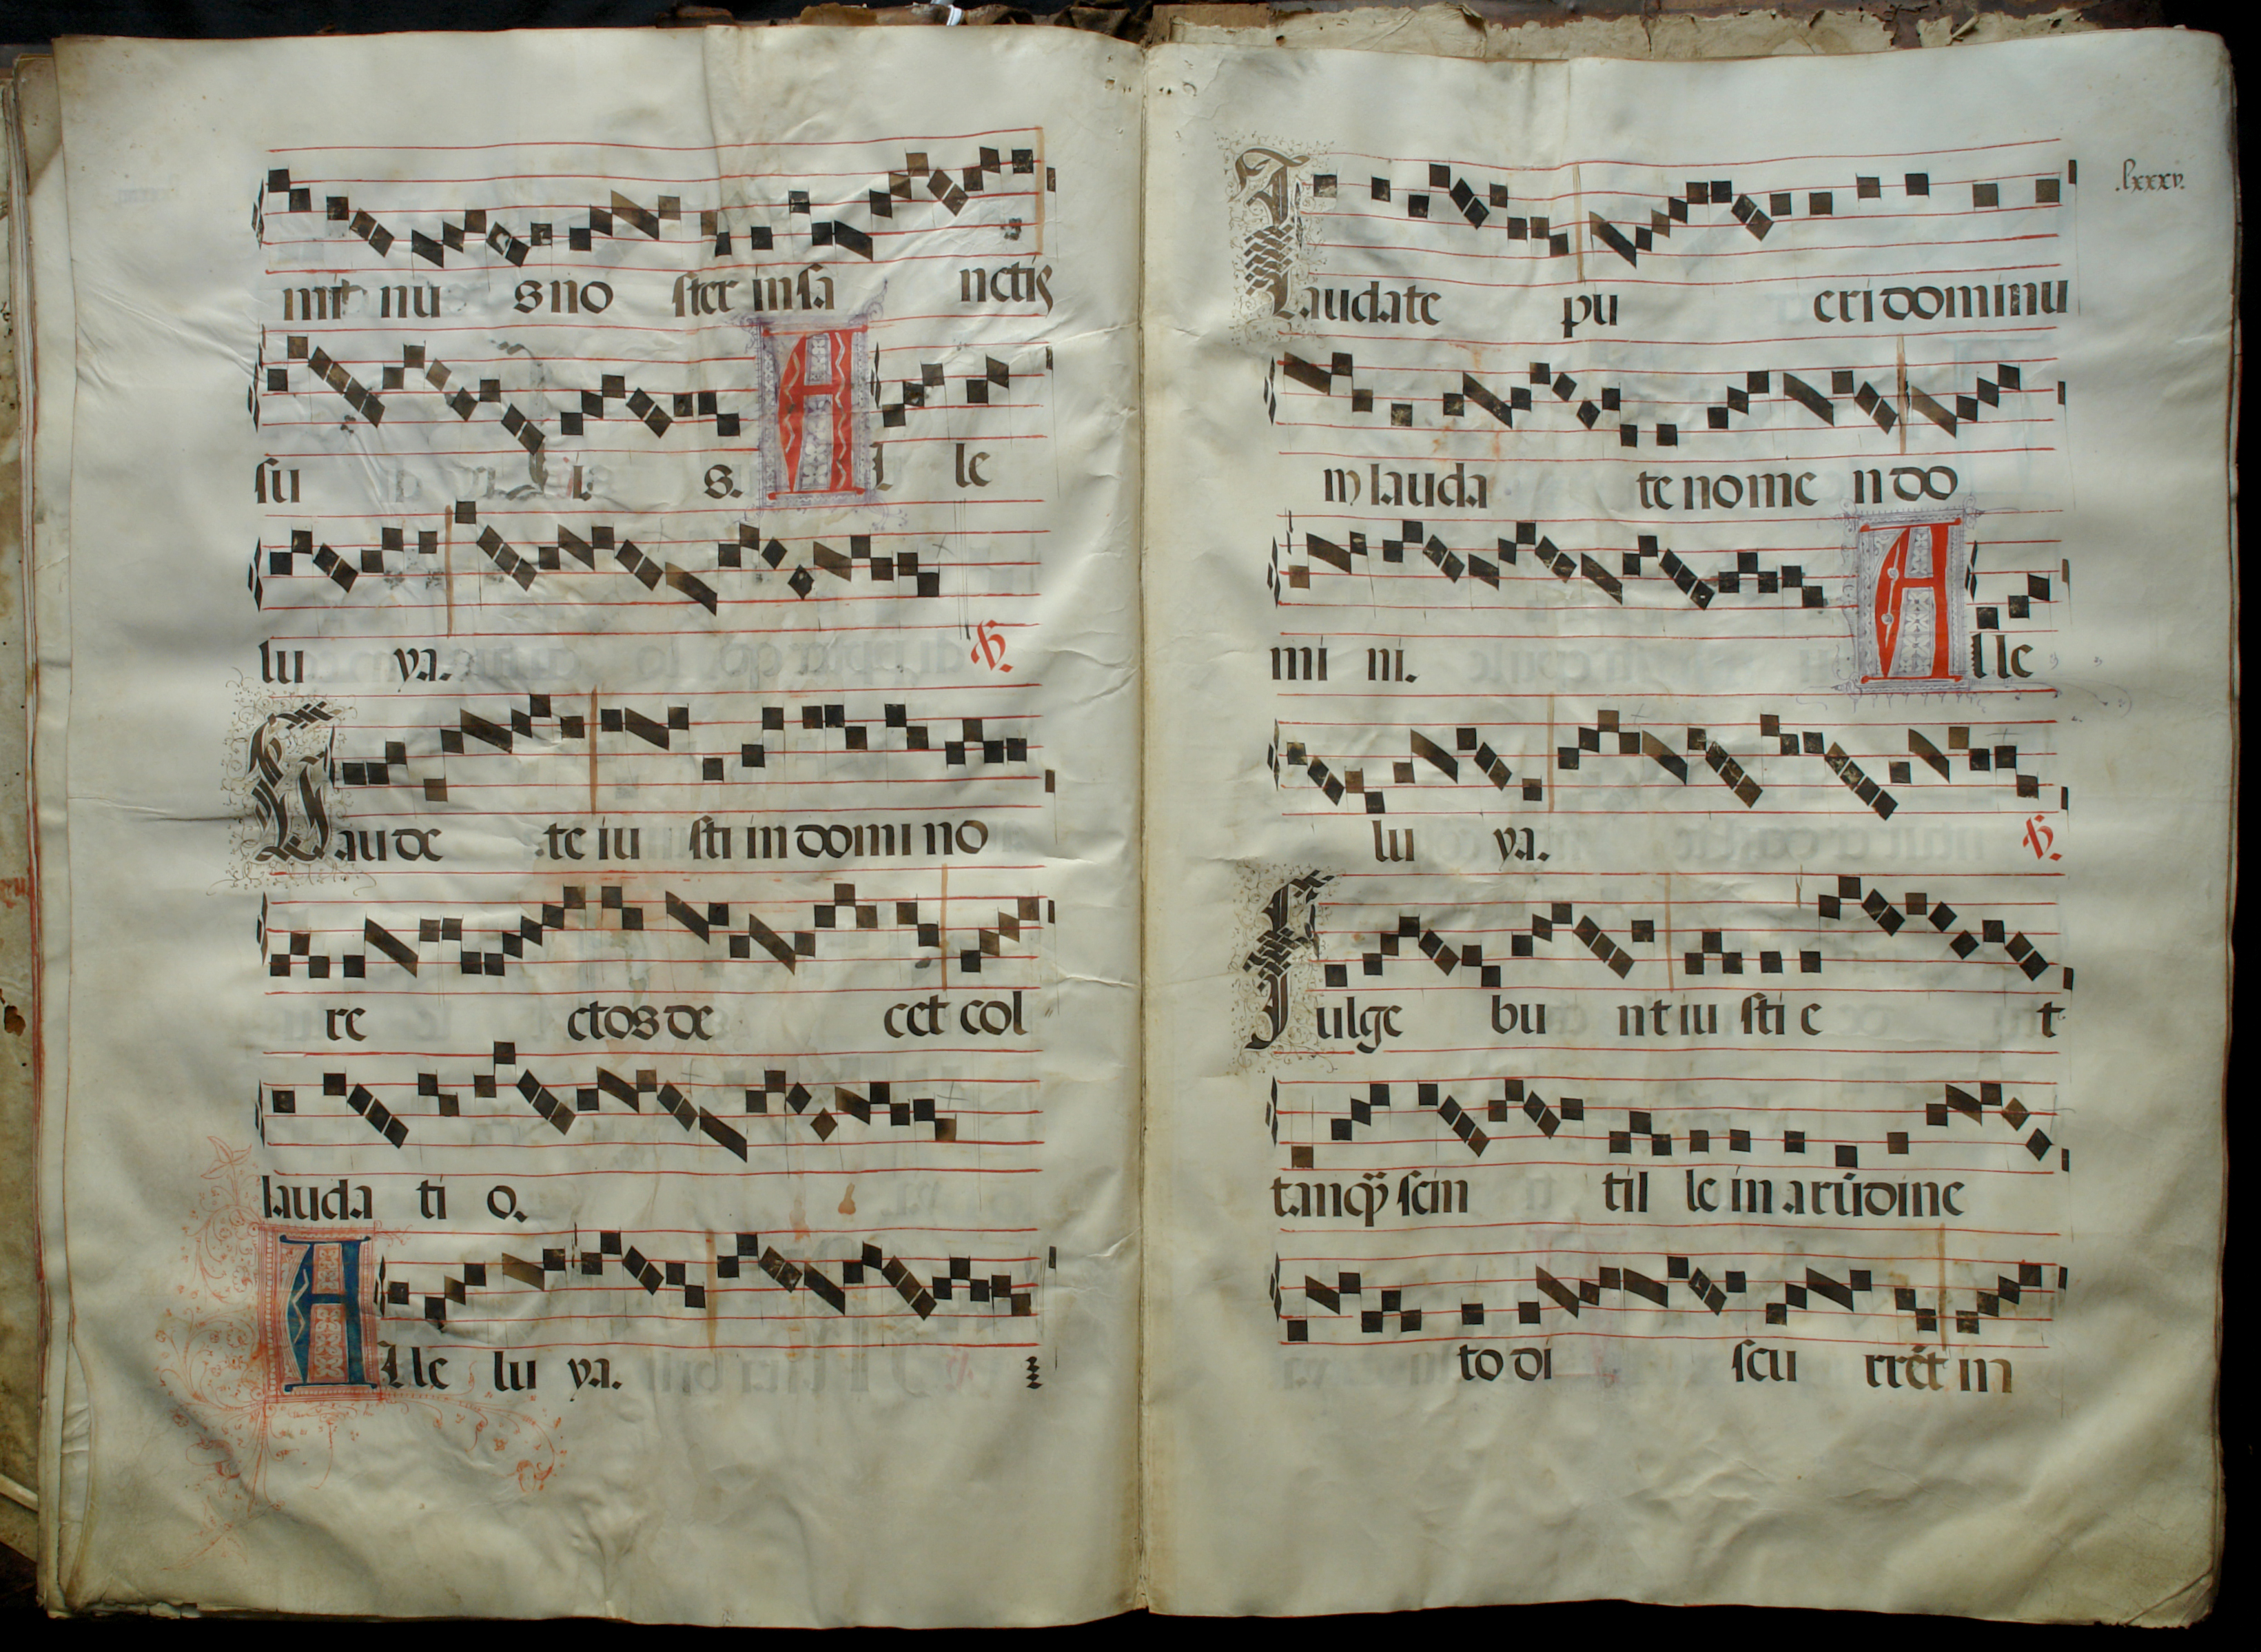 mit nu s no ster in sa nctis
su i s. Al le
lu ya. ℣.
Gaude te iu sti in domi no
re ctos de cet col
lauda ti o.
Alle lu ya.
.lxxxv.
Laudate pu eri dominu
m lauda te nome n do
mi ni. Alle
lu ya. ℣.
Fulge bu nt iu sti e t
tanq̃ scin til le in arūdine
to di scu rrēt in